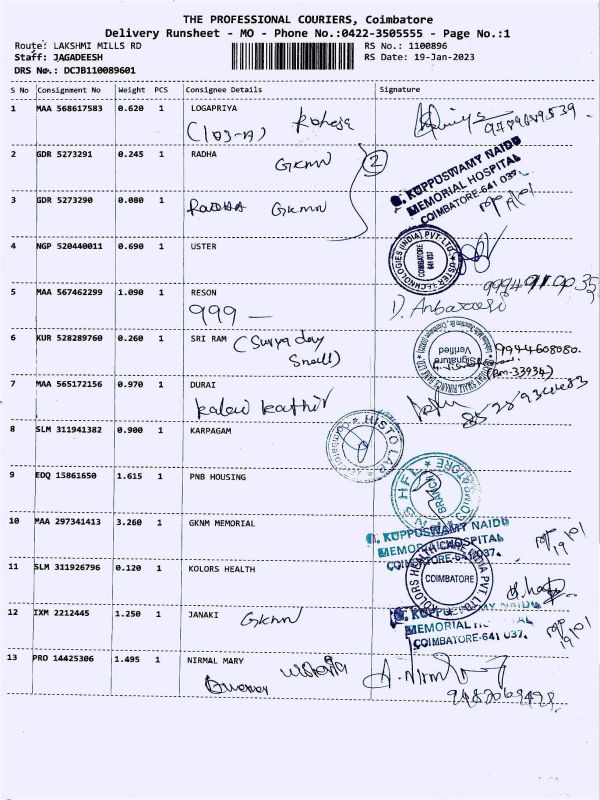 THE PROFESSIONAL COURIERS, Coimbatore
Delivery Runsheet - MO - Phone No.:0422-3505555 - Page No.:1
Route: LAKSHMI MILLS RD RS No.: 1100896
Staff: JAGADEESH RS Date: 19-Jan-2023
DRS No.: DCJB110089601
S No Consignment No Weight PCS Consignee Details Signature
1 MAA 568617583 0.620 1 LOGAPRIYA
(103-A)
2 GDR 5273291 0.245 1 RADHA GKNM 2
G. KUPPUSWAMY NAIDU
MEMORIAL HOSPITAL
COIMBATORE-641 037.
3 GDR 5273290 0.080 1 RADHA GKNM
4 NGP 520440011 0.690 1 USTER
USTER TECHNOLOGIES (INDIA) PVT. LTD.
COIMBATORE
641 037
5 MAA 567462299 1.090 1 RESON
999 -
6 KUR 528289760 0.260 1 SRI RAM (Surya day
Small)
Signature
Verified
9994608080.
7 MAA 565172156 0.970 1 DURAI
kalai kathir
8 SLM 311941382 0.900 1 KARPAGAM
HISTO LAB
9 EDQ 15861650 1.615 1 PNB HOUSING
BRANCH
10 MAA 297341413 3.260 1 GKNM MEMORIAL
G. KUPPUSWAMY NAIDU
MEMORIAL HOSPITAL
COIMBATORE-641 037.
19/01
11 SLM 311926796 0.120 1 KOLORS HEALTH
KOLORS HEALTH CARE INDIA PVT. LTD.
COIMBATORE
12 IXM 2212445 1.250 1 JANAKI GKNM
G. KUPPUSWAMY NAIDU
MEMORIAL HOSPITAL
COIMBATORE-641 037.
19/01
13 PRO 14425306 1.495 1 NIRMAL MARY
A. Nirmal